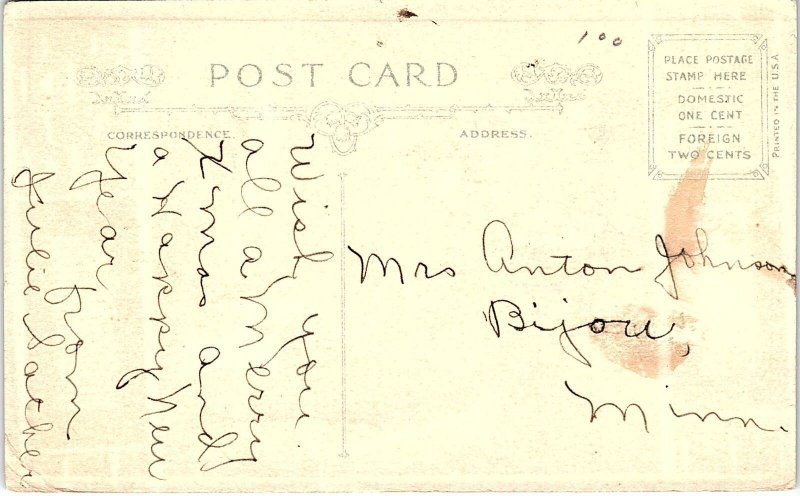 POST CARD
CORRESPONDENCE.
ADDRESS.
PLACE POSTAGE
STAMP HERE
DOMESTIC
ONE CENT
FOREIGN
TWO CENTS
PRINTED IN THE U.S.A
100
Wish you
all a Merry
Xmas and
a Happy New
Year
from
Julie Sather
Mrs Anton Johnson
Bijou,
Minn.